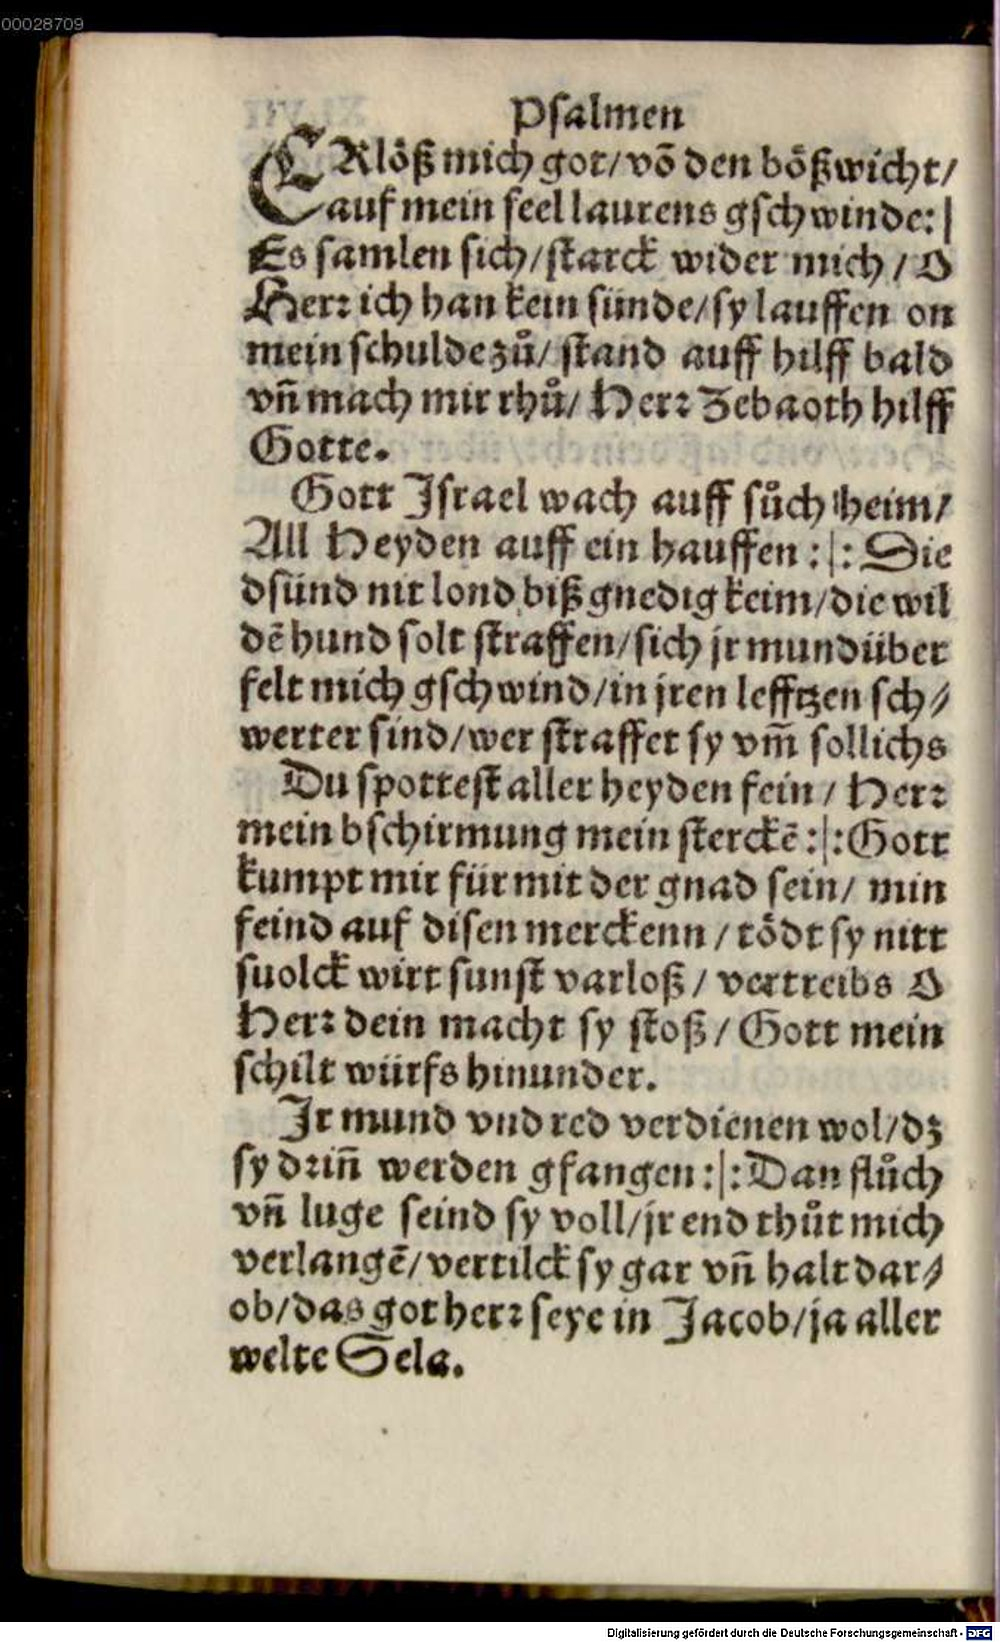 00028709
Psalmen
ERlöß mich got/ võ den bößwicht/
auf mein seel laurens gschwinde:|
Es samlen sich/ starck wider mich / O
Herr ich han kein sünde/ sy lauffen on
mein schulde zů/ stand auff hilff bald
vñ mach mir rhů/ Herr Zebaoth hilff
Gotte.
Gott Israel wach auff sůch heim/
All Heyden auff ein hauffen :|: Die
dsünd nit lond biß gnedig keim/ die wil
dē hund solt straffen/ sich jr mund über
felt mich gschwind/ in jren lefftzen sch⸗
werter sind/ wer straffet sy vm̃ sollichs
Du spottest aller heyden fein / Herr
mein bschirmung mein sterckē :|: Gott
kumpt mir für mit der gnad sein/ min
feind auf disen merckenn / tödt sy nitt
suolck wirt sunst varloß / vertreibs O
Herr dein macht sy stoß / Gott mein
schilt würfs hinunder.
Jr mund vnd red verdienen wol/ dz
sy driñ werden gfangen :|: Dan flůch
vñ luge seind sy voll/ jr end thůt mich
verlangē/ vertilck sy gar vñ halt dar⸗
ob/ das got herr seye in Jacob/ ja aller
welte Sela.
Digitalisierung gefördert durch die Deutsche Forschungsgemeinschaft - DFG